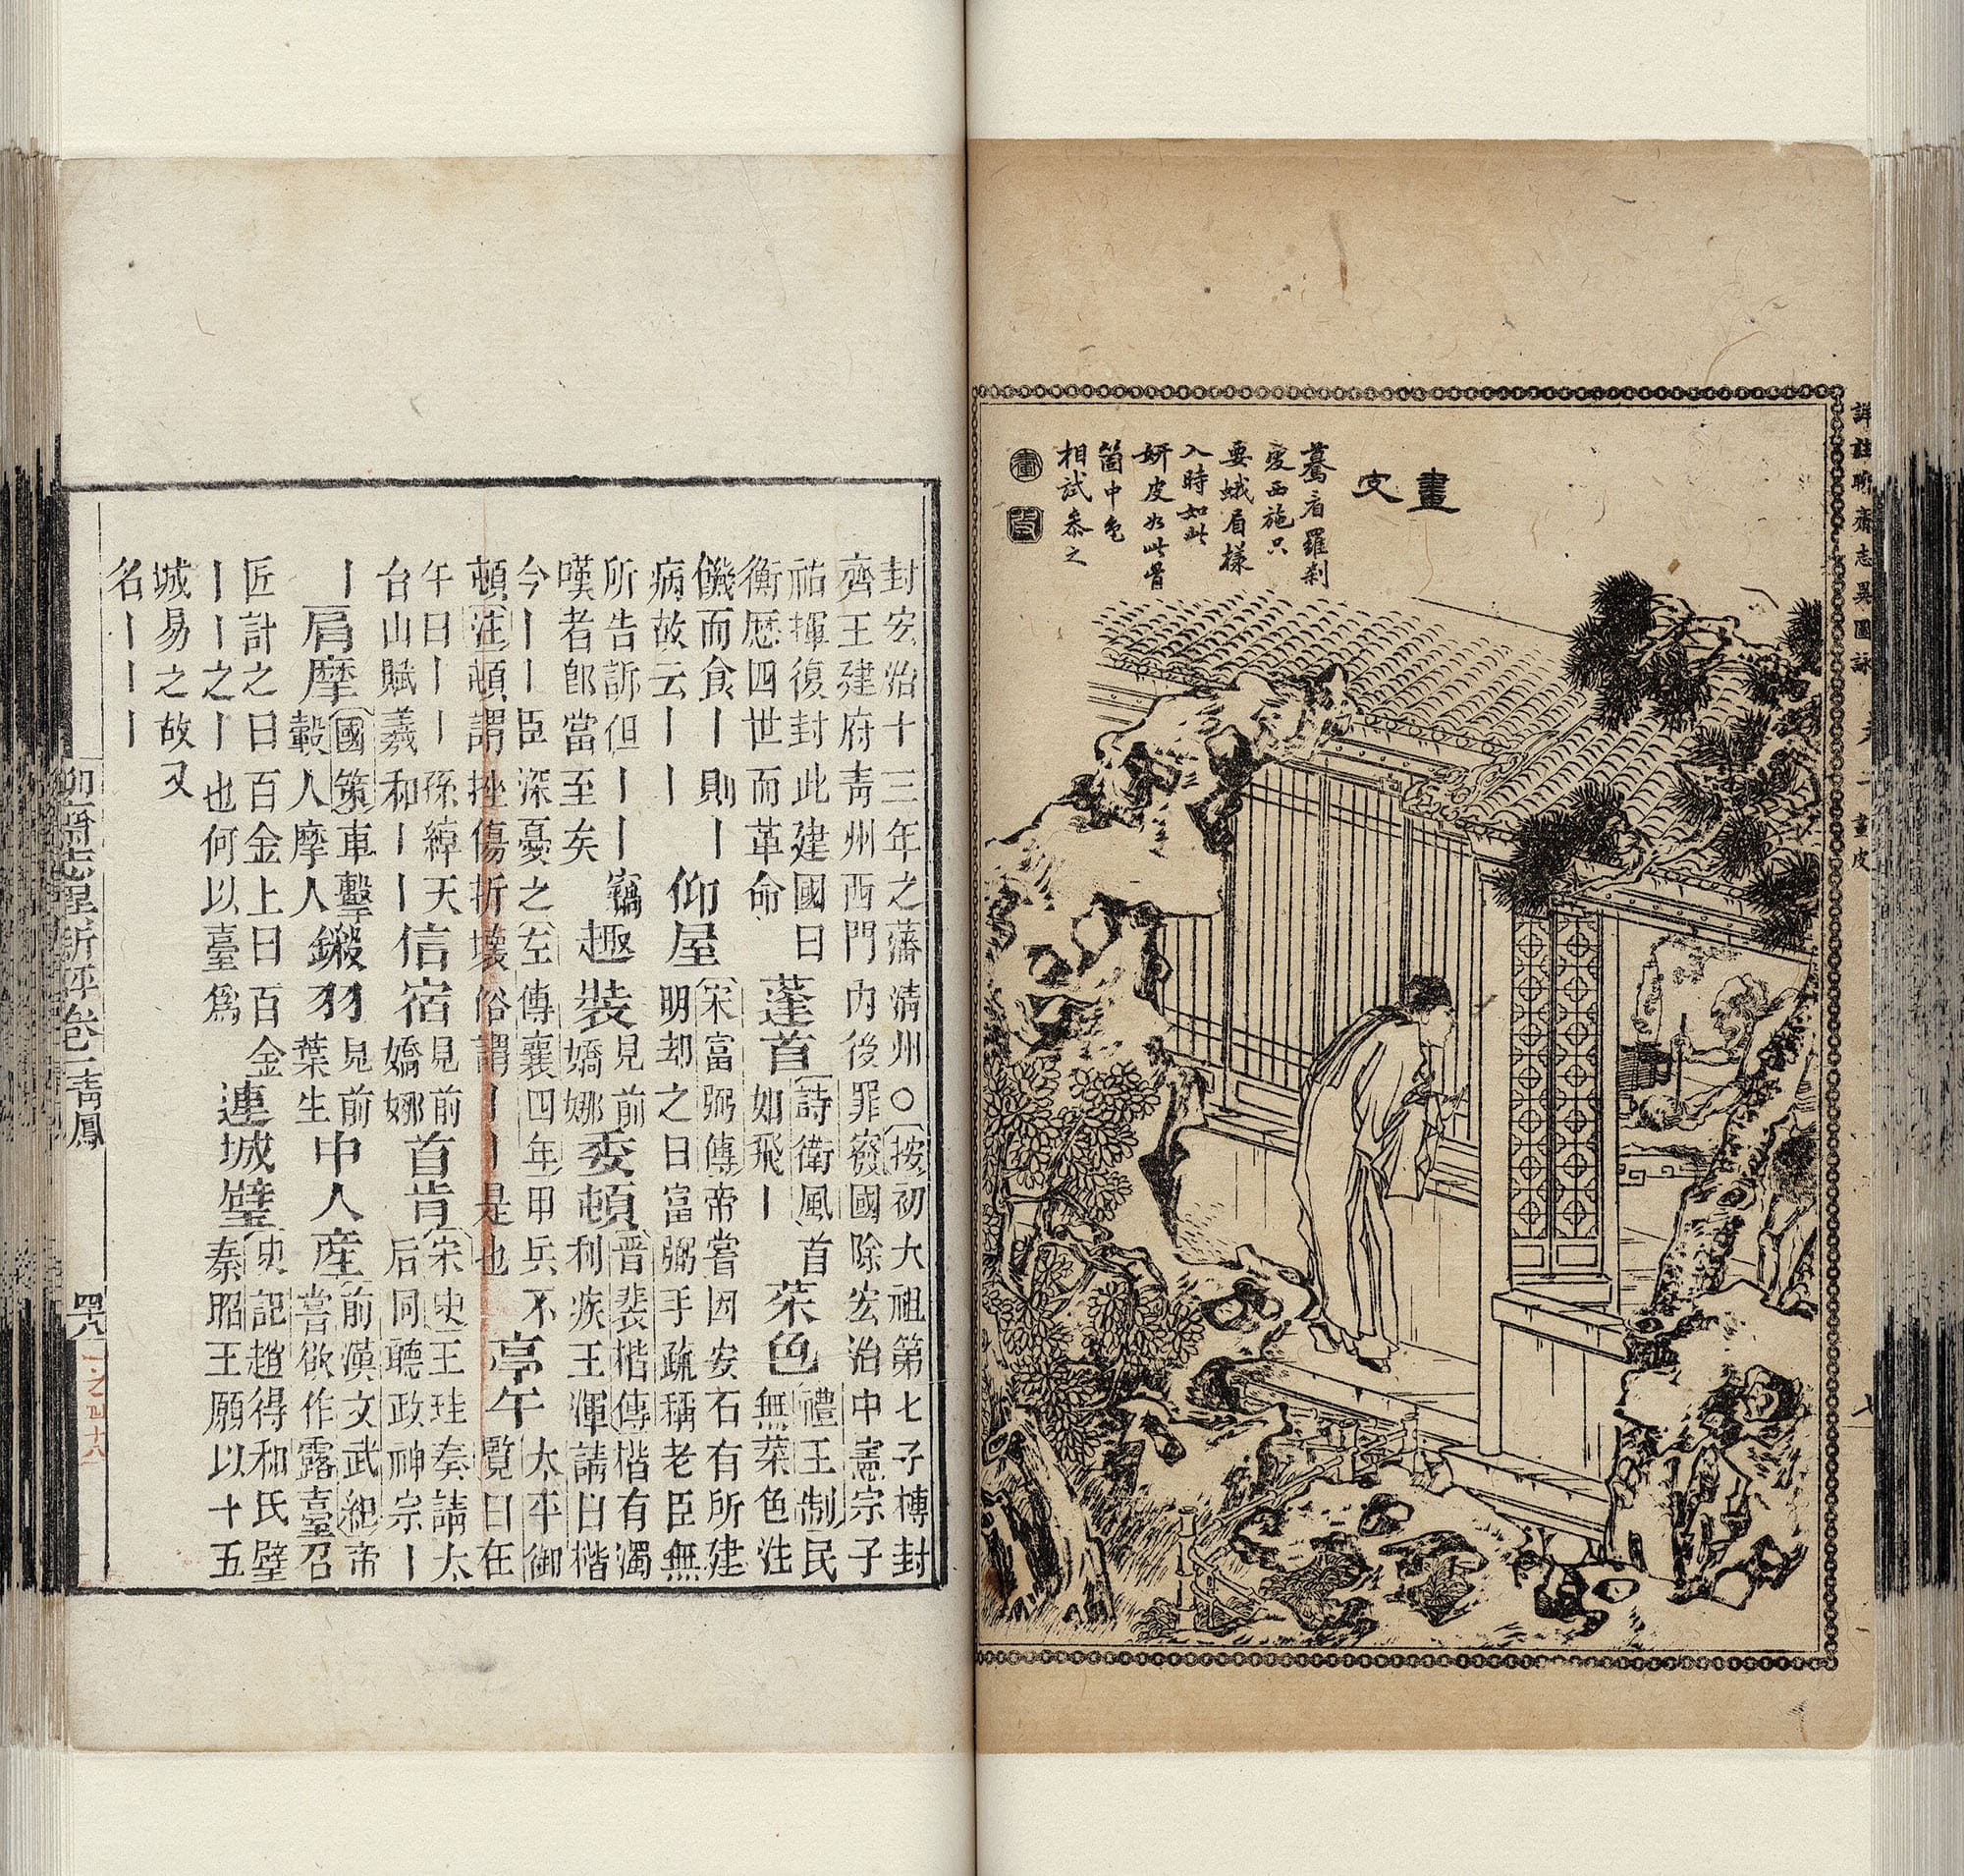 詳註聊齋志異圖詠 卷二 畫皮 七
畫皮
驀看羅刹
變西施只
要蛾眉樣
入時如此
妍皮如此骨
箇中色
相試參之
封宏治十三年之藩清州○按初大祖第七子榑封
齊王建府青州西門内後罪廢國除宏治中憲宗子
祐揮復封此建國曰
衡歷四世而革命
蓬首
詩衛風首
如飛｜
菜色
禮王制民
無菜色注
饑而食｜則｜
病故云｜｜
仰屋
宋富弼傳帝嘗因安石有所建
明却之曰富弼手疏稱老臣無
所告訴但｜｜竊
嘆者卽當至矣
趣裝
見前
嬌娜
委頓
晋裴楷傳楷有濁
利疾王渾請曰楷
今｜｜臣深憂之左傳襄四年甲兵不
頓注頓謂挫傷折壞俗謂｜｜是也
亭午
太平御
覽日在
午曰｜｜孫綽天
台山賦羲和｜｜
信宿
見前
嬌娜
首肯
宋史王珪奏請太
后同聽政神宗｜
｜
肩摩
國策車擊
轂人摩人
鎩羽
見前
葉生
中人産
前漢文武紀帝
嘗欲作露臺召
匠計之曰百金上曰百金
｜｜之｜也何以臺爲
連城璧
史記趙得和氏璧
秦昭王願以十五
城易之故又
名｜｜｜
聊齋志異新評卷一青鳳 四八